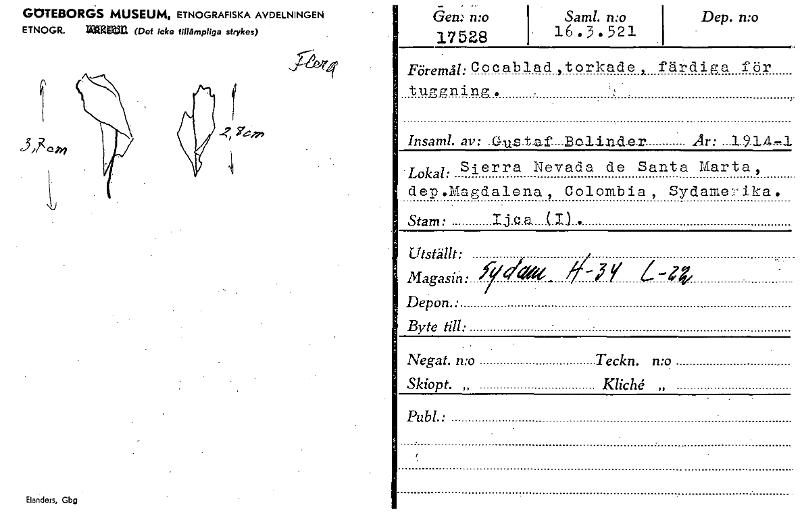 GÖTEBORGS MUSEUM, ETNOGRAFISKA AVDELNINGEN
ETNOGR. (Det icke tillämpliga strykes)
Flera
3,7cm
2,8cm
Elanders, Gbg
Gen: n:o
17528
Saml. n:o
16.3.521
Dep. n:o
Föremål: Cocablad,torkade, färdiga för
tuggning.
Insaml. av: Gustaf Bolinder År: 1914-1
Lokal: Sierra Nevada de Santa Marta,
dep.Magdalena, Colombia, Sydamerika.
Stam: Ijca (I).
Utställt:
Magasin: Sydam. H-34 L-22
Depon.:
Byte till:
Negat. n:o Teckn. n:o
Skiopt. „ Kliché „
Publ.: